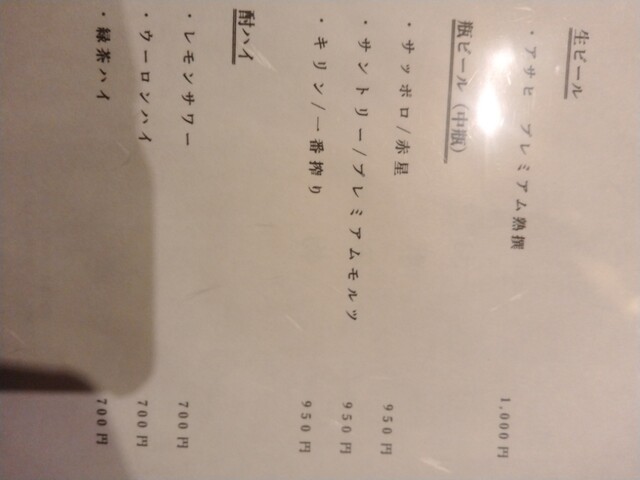 生ビール
・アサヒ プレミアム熟撰 1,000円
瓶ビール（中瓶）
・サッポロ/赤星 950円
・サントリー/プレミアムモルツ 950円
・キリン/一番搾り 950円
酎ハイ
・レモンサワー 700円
・ウーロンハイ 700円
・緑茶ハイ 700円